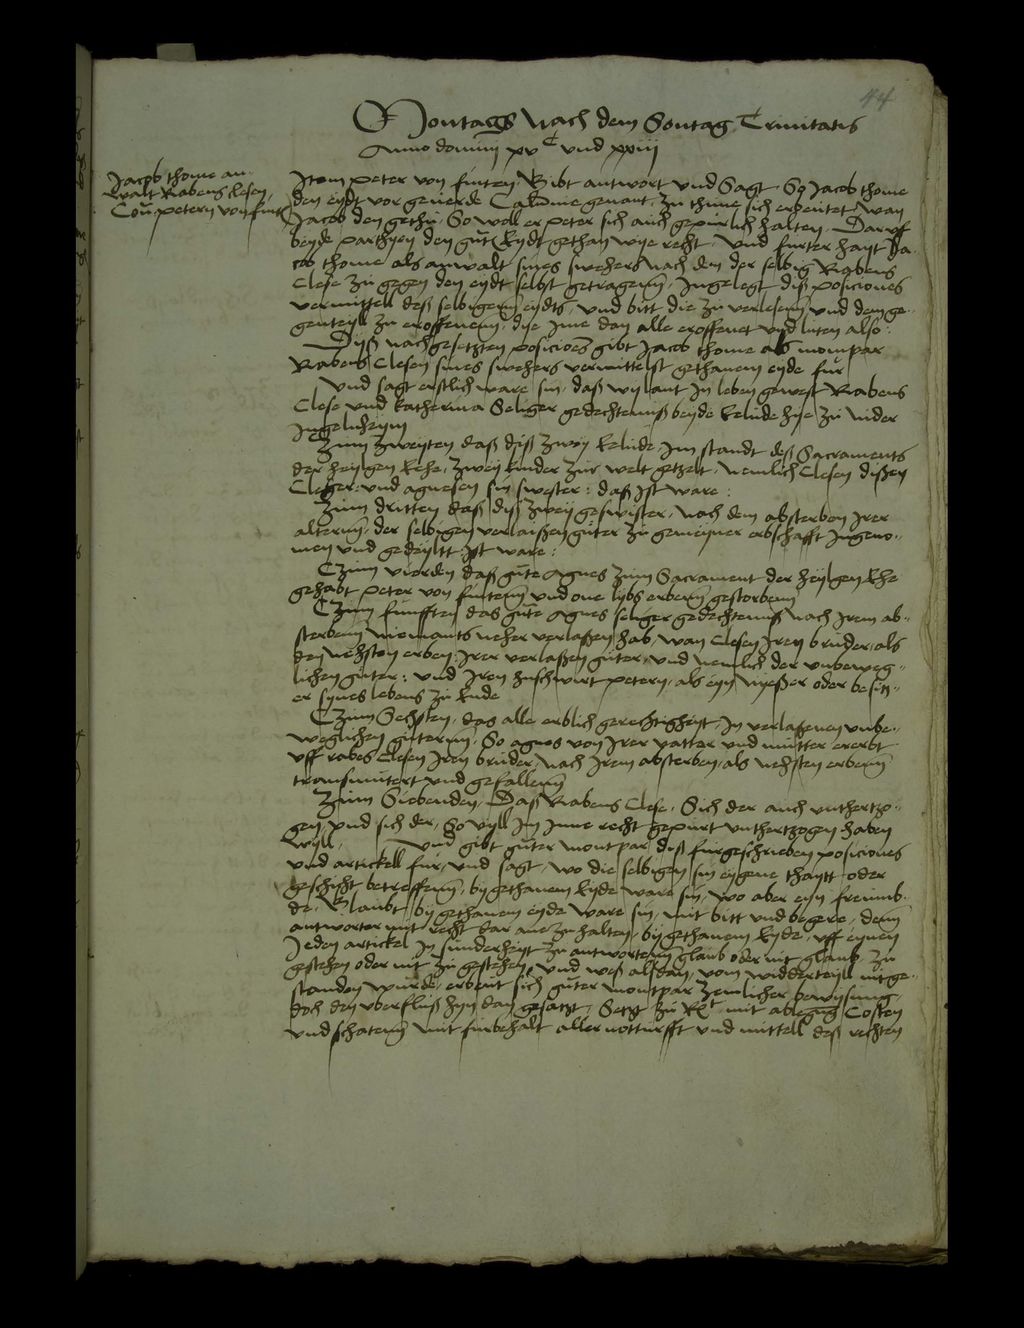 44
Montags Nach dem Sontag Trinitatis
Anno domini xvᶜ und xxiii
Jacob thome an-
walt Rabens Clesen
Con petern von finten
Item peter von finten Gibt antwort und Sagt So Jacob thome
den eydt vor geuerde Calumnie genant zu thune sich erbeutet wan
Jacob den gethu So woll er peter sich auch gepurlich halten Daruff
beyde parthyen den gut Eydt gethan wye recht Und furter hayt Ja-
cob thome als anwalt sines swehers nach dem der selbig Rabens
Clese zu gegen den eydt selbst getragenn Ingelegt diß posiciones
vermittell deß selbigenn eydts und bitt die zu verlesenn und dem ge-
genteyll zu eroffenenn die Ime dan alle eroffenet und luten also
Dyß nachgesetzten posiciones gibt Jacob thome als mompar
Rabens Clesen sines swehers vermittelst gethanem eyde fur
Und sagt erstlich ware sin das wylant In leben gewest Rabens
Clese und Katherina Seliger gedechteniß beyde Eelude hye zu Nider
Ingelnheym
Zum Zweyten daß diß zwey Eelude Im standt deß Sacraments
der heyligen Eehe zwey kinder zur welt getzelt Nemlich Clesen dißen
Cleger und agnesen sin swester: daß Ist ware:
Zum dritten daß diß zwey geswister Nach dem absterben Irer
alternn der selbigen verlaißen guter zu gemeyner erbschafft Ingeno-
men und gedeyltt Ist ware:
Czum vierden daß gute Agnes zum Sacrament der heylgen Ehe
gehabt peter von fintenn und one lybs erbenn gestorbenn
Czum funfften das gute Agnes seliger gedechteniß nach Irem ab-
sterbenn Niemants neher verlassen hab wan Clesen Iren bruder als
den nehsten erben Irer verlaßen guter und nemlich der unbeweg-
lichen guter: und Iren huschwirt petern als eyn nyeßer oder besitz-
er synes lebens zu Ende
Czum Sechsten das alle erblich gerechtigkeyt In verlassenen unbe-
weglichen guternn So agnes von Irer vatter und mutter ererbt
uff rabes Clesen Iren bruder nach Irem absterben als nehsten erbenn
transmitert und gefallenn
Zum Siebenden Daß Rabens Clese Sich der auch untherzo-
gen und sich der So vyll Im Inne recht gepurt unthertzogen haben
wyll Und gibt guter montpar diß furgeschrieben posiciones
und artickell fur und sagt wo die selbigen sin eygene thaytt oder
geschyht betreffenn by gethanem Eyde ware sin wo aber eyn freimb-
de Glaubt by gethanem eyde ware sin mit bitt und begere denn
antworter mit recht dar ane zu halten by gethanem Eyde uff eynen
Jeden artickel In sunderheyt zu antwortenn glaub oder nit glaub zu
gestehen oder nit zu gestehen und weß alßdan vom widderteyll nit ge-
standen wurde erbeut sich guter montpar zemlicher bewysung
doch den uberfluß hyn dan gesatzt Setzt zu Rᵗ mit ablegung Costen
und schatenn mit furbehalt aller notturfft und mittell deß rechten